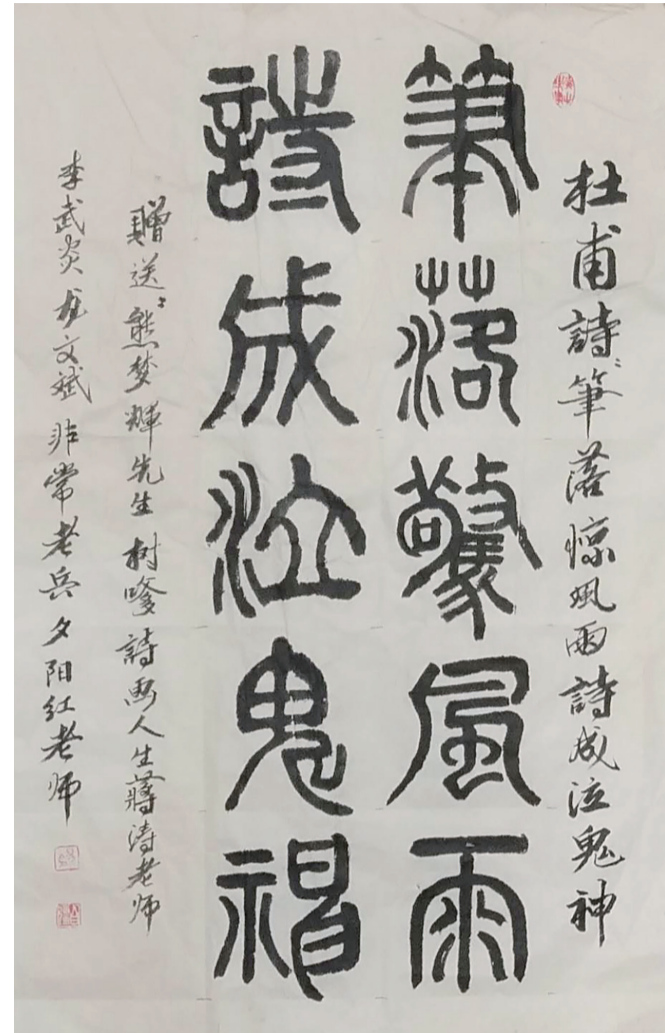 杜甫詩：筆落惊风雨詩成泣鬼神
筆落驚風雨
詩成泣鬼神
贈送：熊梦辉先生树嗲詩画人生蔣涛老师
李武炎龙文斌非常老兵夕阳红老师